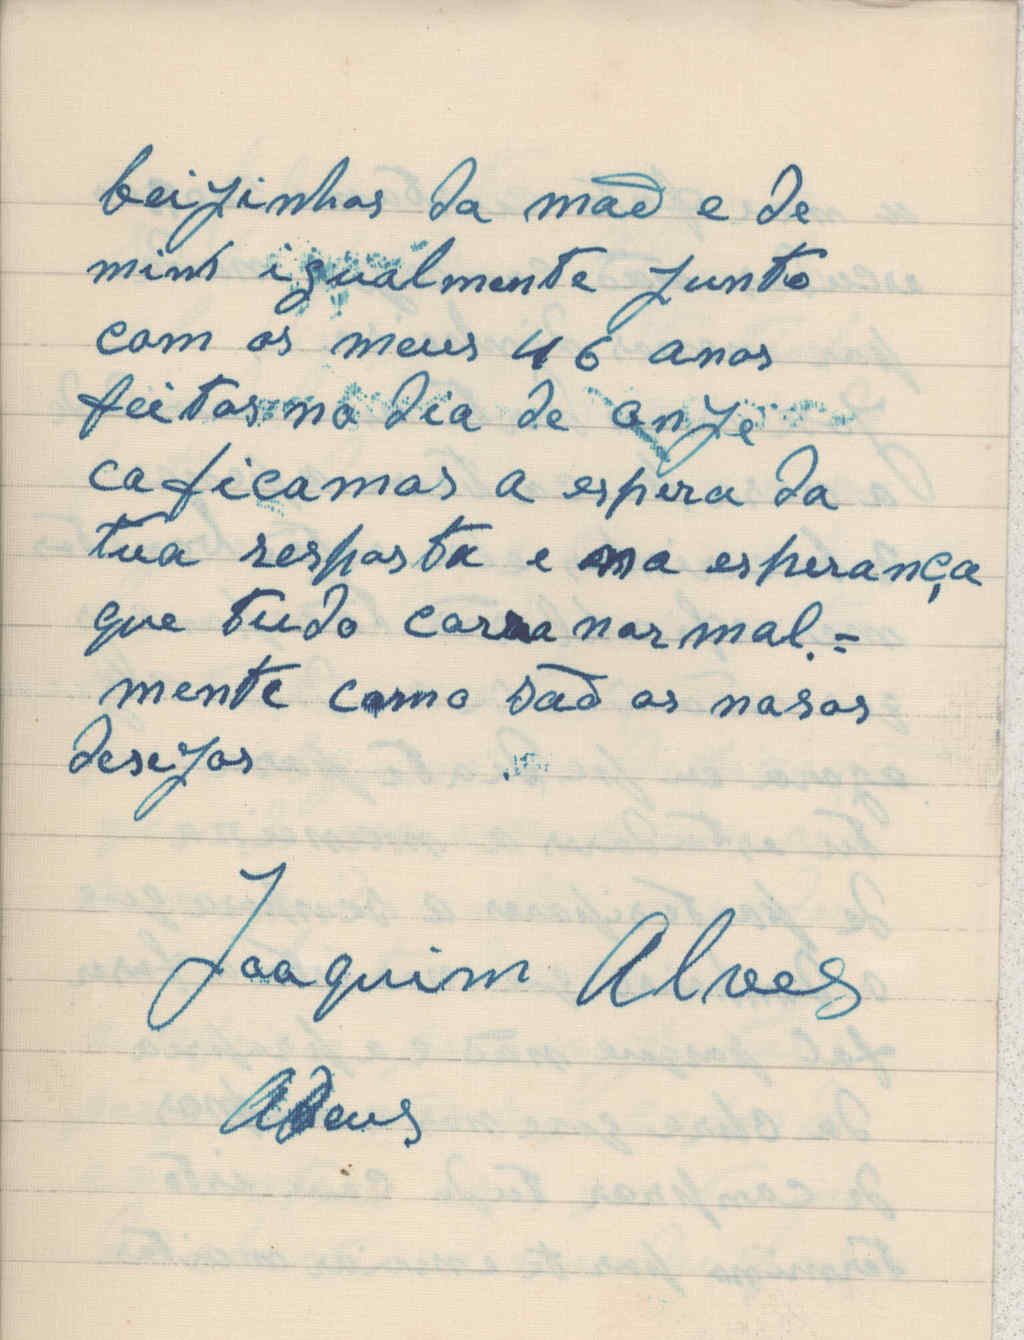 beijinhos da mãe e de
mim igualmente junto
com os meus 46 anos
feitos no dia de onze
ca ficamos a espera da
tua resposta e na esperança
que tudo corra normal.=
mente como são os nosos
desejos
Joaquim Alves
Adeus